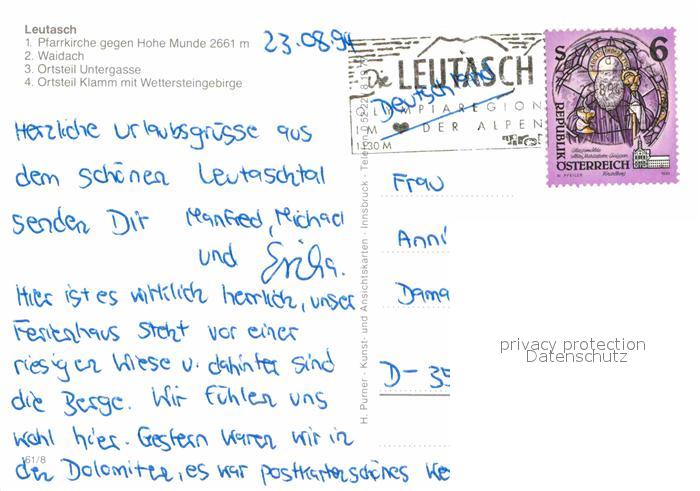 Leutasch
1. Pfarrkirche gegen Hohe Munde 2661 m
2. Waidach
3. Ortsteil Untergasse
4. Ortsteil Klamm mit Wettersteingebirge
23.08.94
Herzliche Urlaubsgrüsse aus
dem schönen Leutaschtal
senden Dir Manfred, Michael
und Erika.
Hier ist es wirklich herrlich, unser
Ferienhaus steht vor einer
riesigen Wiese u. dahinter sind
die Berge. Wir fühlen uns
wohl hier. Gestern waren wir in
den Dolomiten, es war postkartenschönes We
61/8
H. Purner - Kunst- und Ansichtskarten - Innsbruck
Die LEUTASCH
OLYMPIAREGION
DER ALPEN
1130 M
Tirol
Deutschland
S 6
REPUBLIK
ÖSTERREICH
Frau
Anni
Dama
D-35
privacy protection
Datenschutz